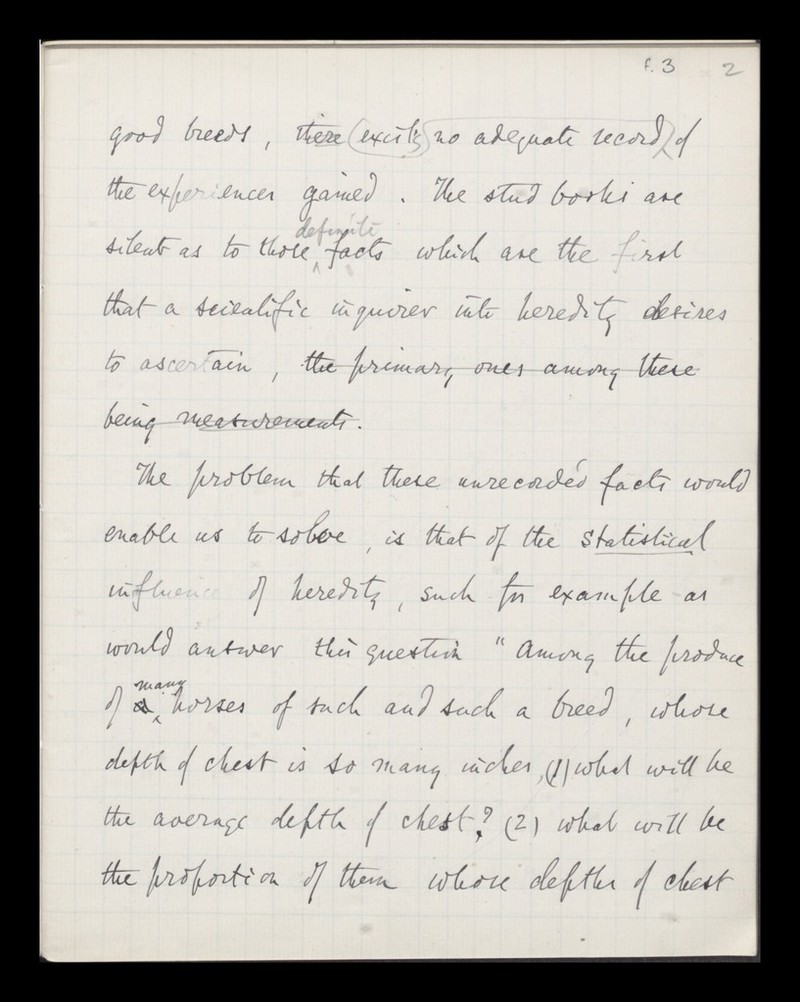 f. 3 2
good breeds, there exists no adequate record of
the experiences gained. The stud books are
definite
silent as to those facts which are the first
that a scientific inquirer into heredity desires
to ascertain, the primary ones among these
being measurements.
The problem that these unrecorded facts would
enable us to solve, is that of the statistical
influence of heredity, such for example as
would answer this question "Among the produce
many
of a horses of such and such a breed, whose
depth of chest is so many inches, (1) what will be
the average depth of chest? (2) what will be
the proportion of them whose depths of chest